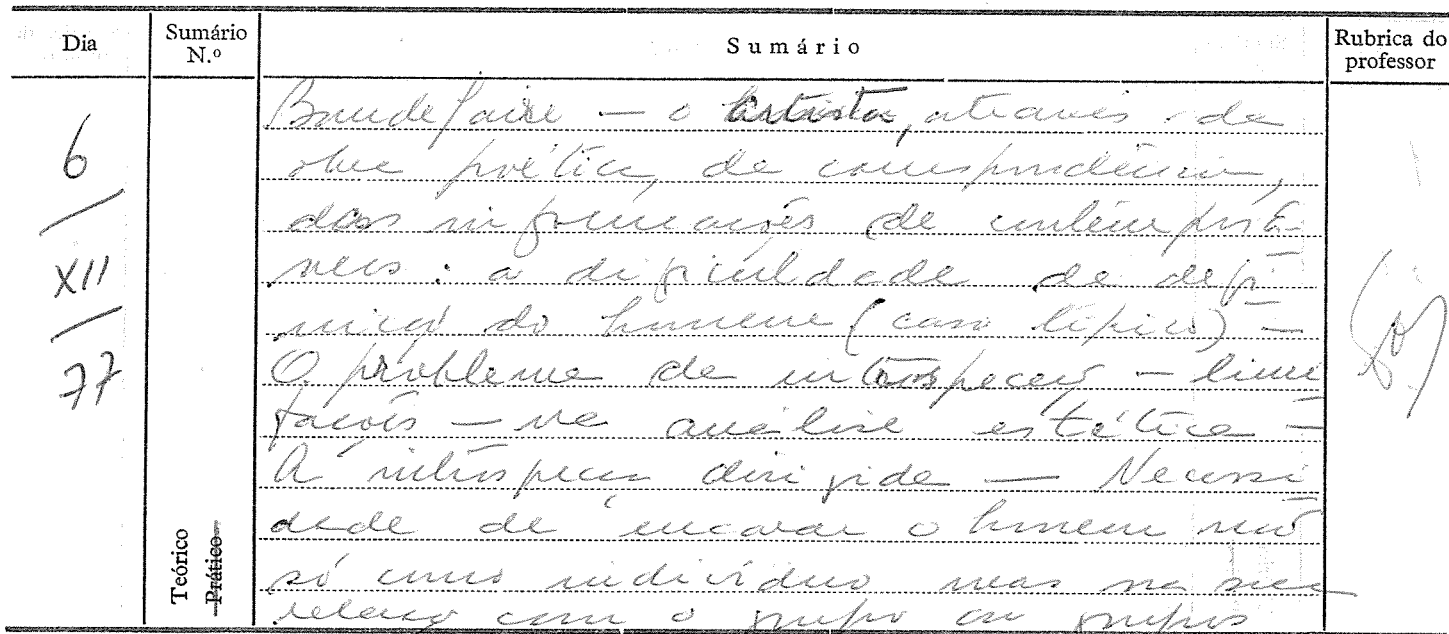 Dia
Sumário N.º
Sumário
Rubrica do professor
6
XII
77
Teórico
Prático
Baudelaire — o artista, através da
obra poética, da correspondência,
das informações de contemporâ-
neos: a dificuldade de defi-
nição do homem (caso típico) —
O problema da introspecção — limi
tações — na análise estética —
A introspecção dirigida — Necessi
dade de encarar o homem não
só como indivíduo mas na sua
relação com o grupo ou grupos